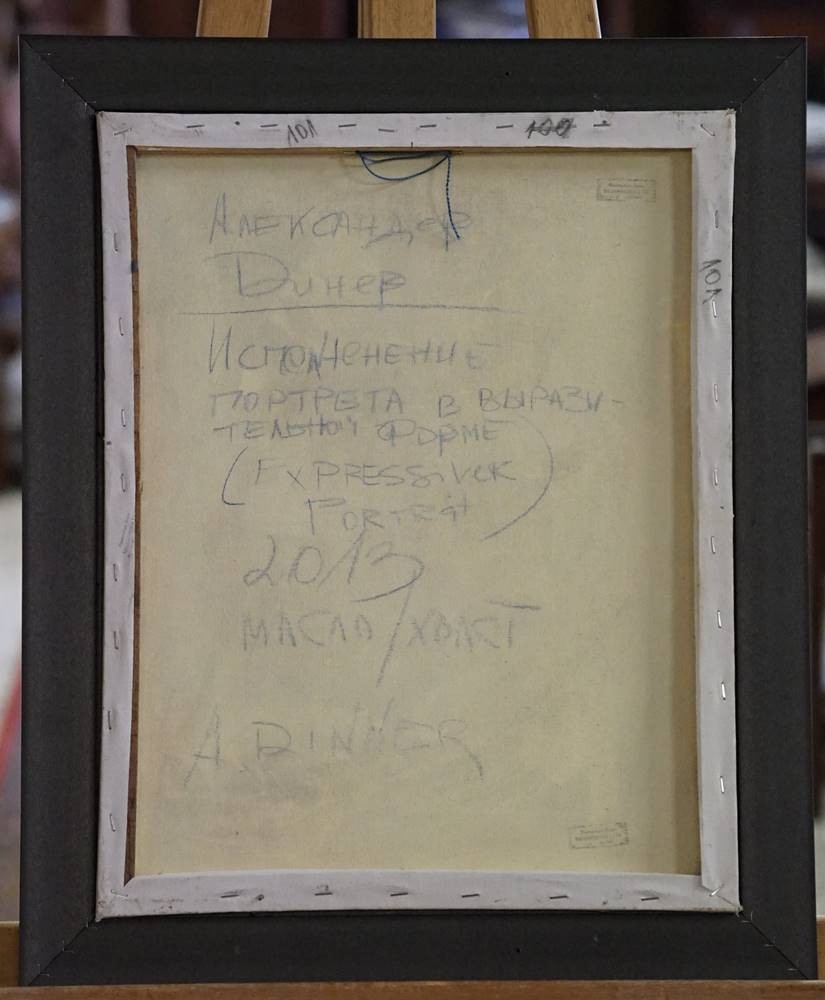 101 100
АЛЕКСАНДР
ДИНЕР
ИСПОЛНЕНИЕ
ПОРТРЕТА В ВЫРАЗИ-
ТЕЛЬНОЙ ФОРМЕ
(EXPRESSIVER
PORTRÄT)
2013
МАСЛО/ХОЛСТ
A. DINNER
101